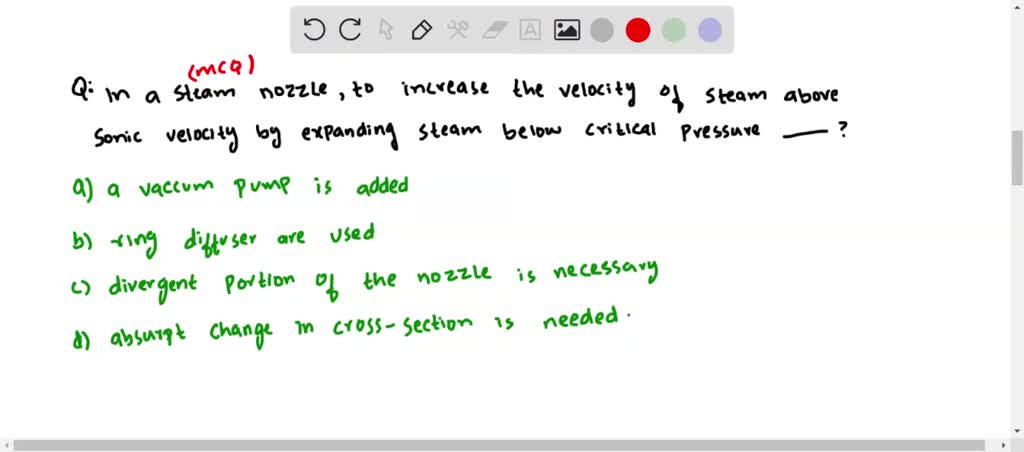 (MCQ)
Q: In a steam nozzle, to increase the velocity of steam above
sonic velocity by expanding steam below critical pressure ___ ?
a) a vaccum pump is added
b) ring diffuser are used
c) divergent portion of the nozzle is necessary
d) absurpt change in cross-section is needed.